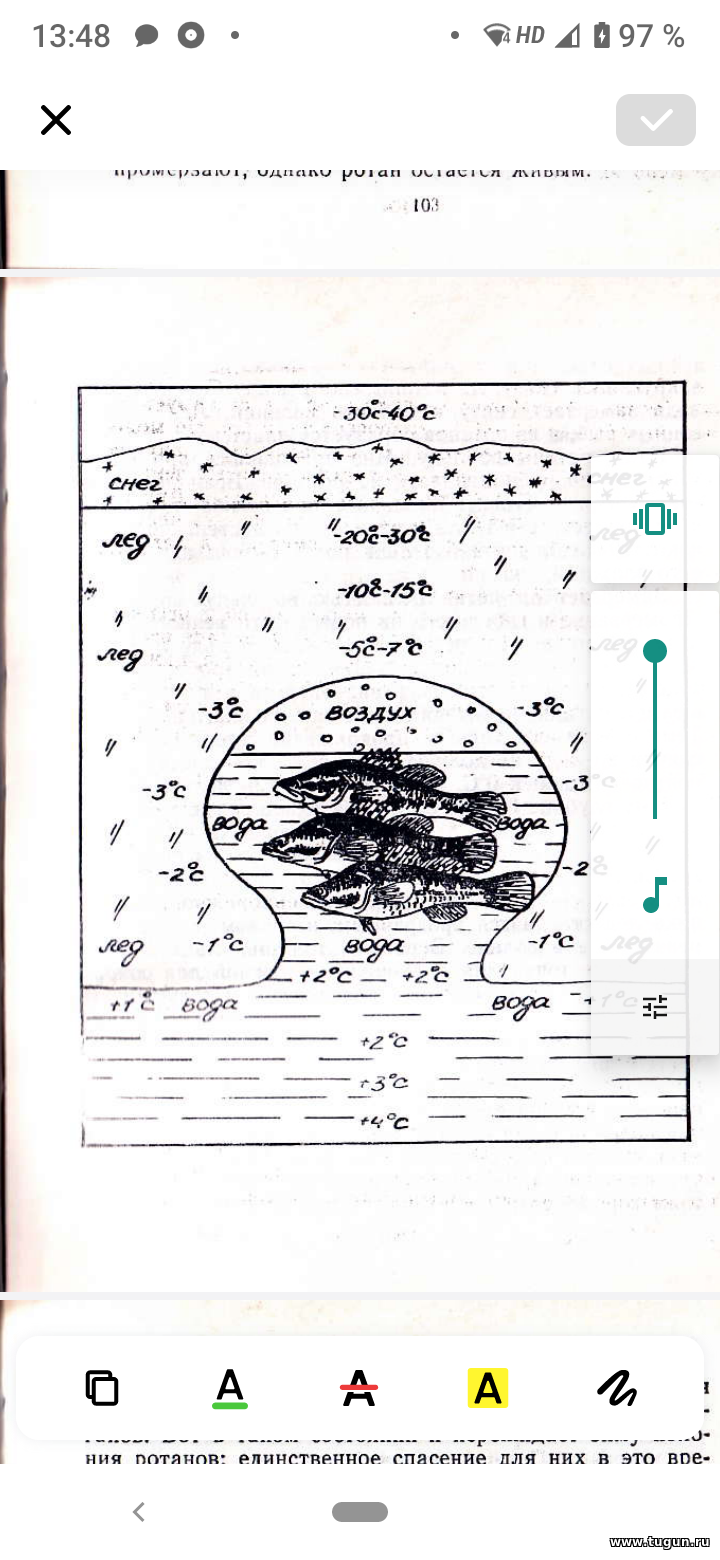 13:48
4 HD 97 %
промерзают, однако ротан остается живым.
103
-30°С-40°С
снег
снег
лед -20°С-30°С лед
-10°С-15°С
лед -5°С-7°С лед
-3°С воздух -3°С
-3°С -3°С
вода вода
-2°С -2°С
лед -1°С вода -1°С лед
+2°С +2°С
+1°С вода вода +1°С
+2°С
+3°С
+4°С
A A A
ния ротанов: единственное спасение для них в это вре-
www.tugun.ru